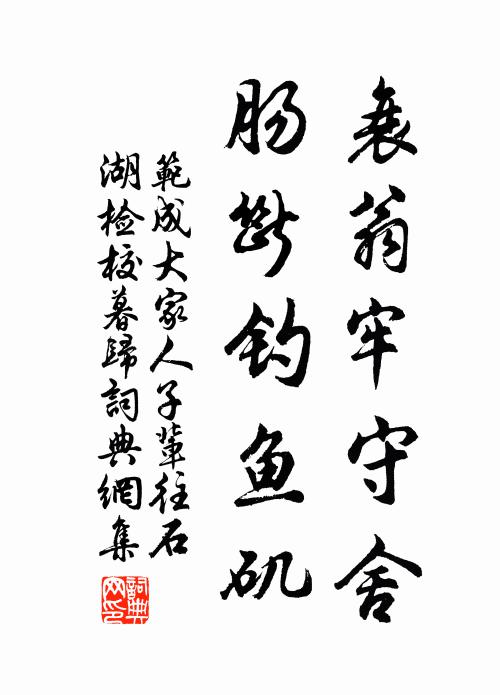 衰翁牢守舍
肠断钓鱼矶
範成大家人子輩往石
湖检校暮歸詞典網集
詞典网印